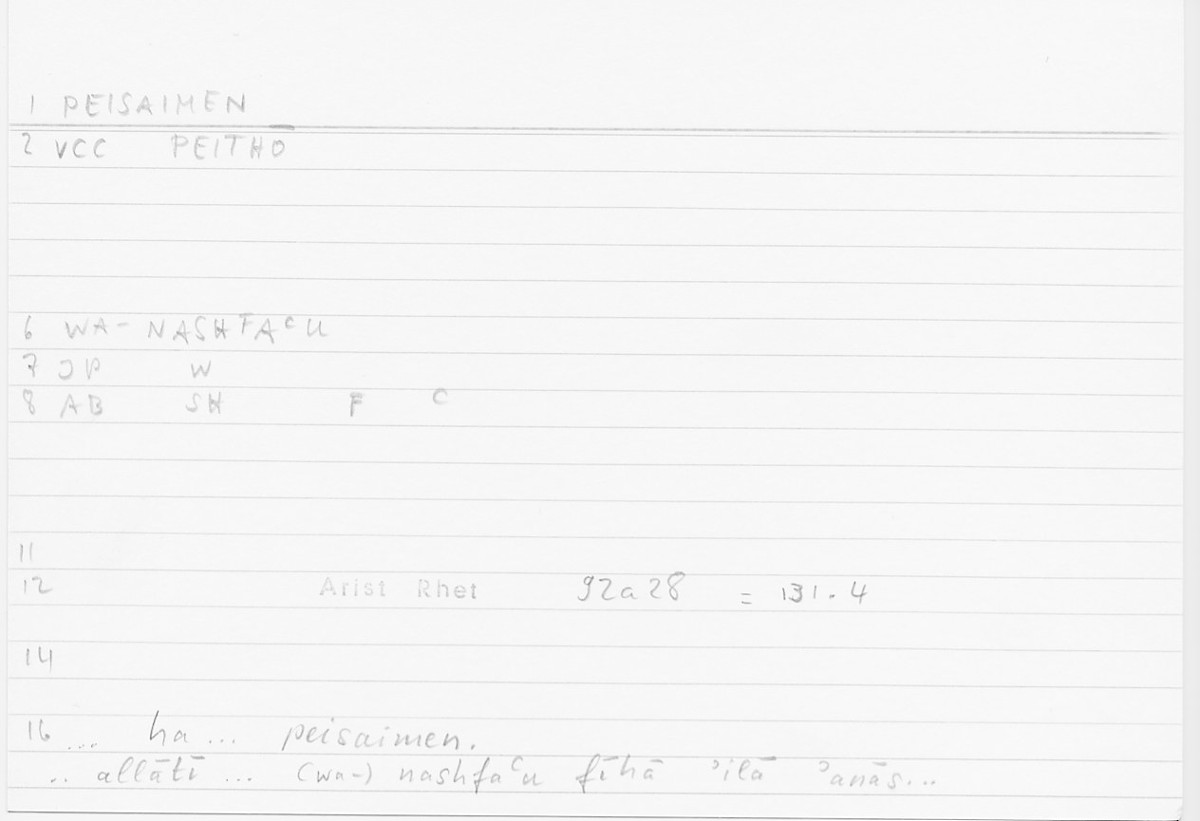 1 PEISAIMEN
2 VCC PEITHŌ
6 WA-NASHFAᶜU
7 JP W
8 AB SH F C
11
12 Arist Rhet 92a28 = 131.4
14
16 ... ha ... peisaimen.
.. allātī ... (wa-) nashfaᶜu fīhā ʾilā ʾanās...